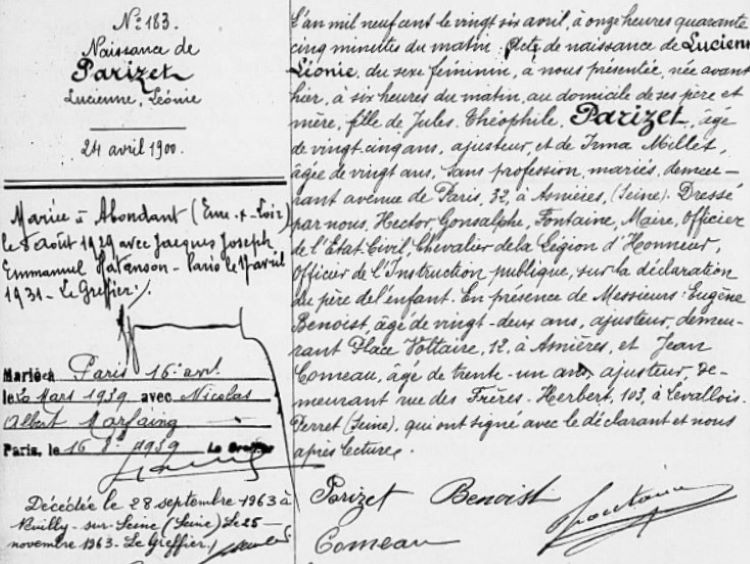 Nº 183.
Naissance de
Parizet
Lucienne, Léonie
24 avril 1900.
Mariée à Abondant (Eure-&-Loir)
le août 1929 avec Jacques Joseph
Emmanuel Natanson - Paris le avril
1931 - Le Greffier.
Mariée à Paris 16e arrt
le Mars 1939 avec Nicolas
Albert Marfaing
Paris, le 16 1939 Le Greffier
Décédée le 28 septembre 1963 à
Neuilly-sur-Seine (Seine) Le 25
novembre 1963. Le Greffier
L'an mil neuf cent le vingt six avril, à onze heures quarante
cinq minutes du matin : Acte de naissance de Lucienne
Léonie, du sexe féminin, à nous présentée, née avant
hier, à six heures du matin, au domicile de ses père et
mère, fille de Jules, Théophile, Parizet, âgé
de vingt-cinq ans, ajusteur, et de Irma Millet,
âgée de vingt ans, sans profession, mariés, demeu-
rant avenue de Paris, 32, à Asnières, (Seine). Dressé
par nous, Hector, Gonsalphe, Fontaine, Maire, Officier
de l'Etat-Civil, Chevalier de la Légion d'Honneur,
Officier de l'Instruction publique, sur la déclaration
du père de l'enfant. En présence de Messieurs : Eugène
Benoist âgé de vingt-deux ans, ajusteur, demeu-
rant Place Voltaire, 12, à Asnières, et Jean
Comeau, âgé de trente-un ans, ajusteur, de-
meurant rue des Frères-Herbert, 103, à Levallois-
Perret (Seine), qui ont signé avec le déclarant et nous
après lecture.
Parizet Benoist Fontaine
Comeau